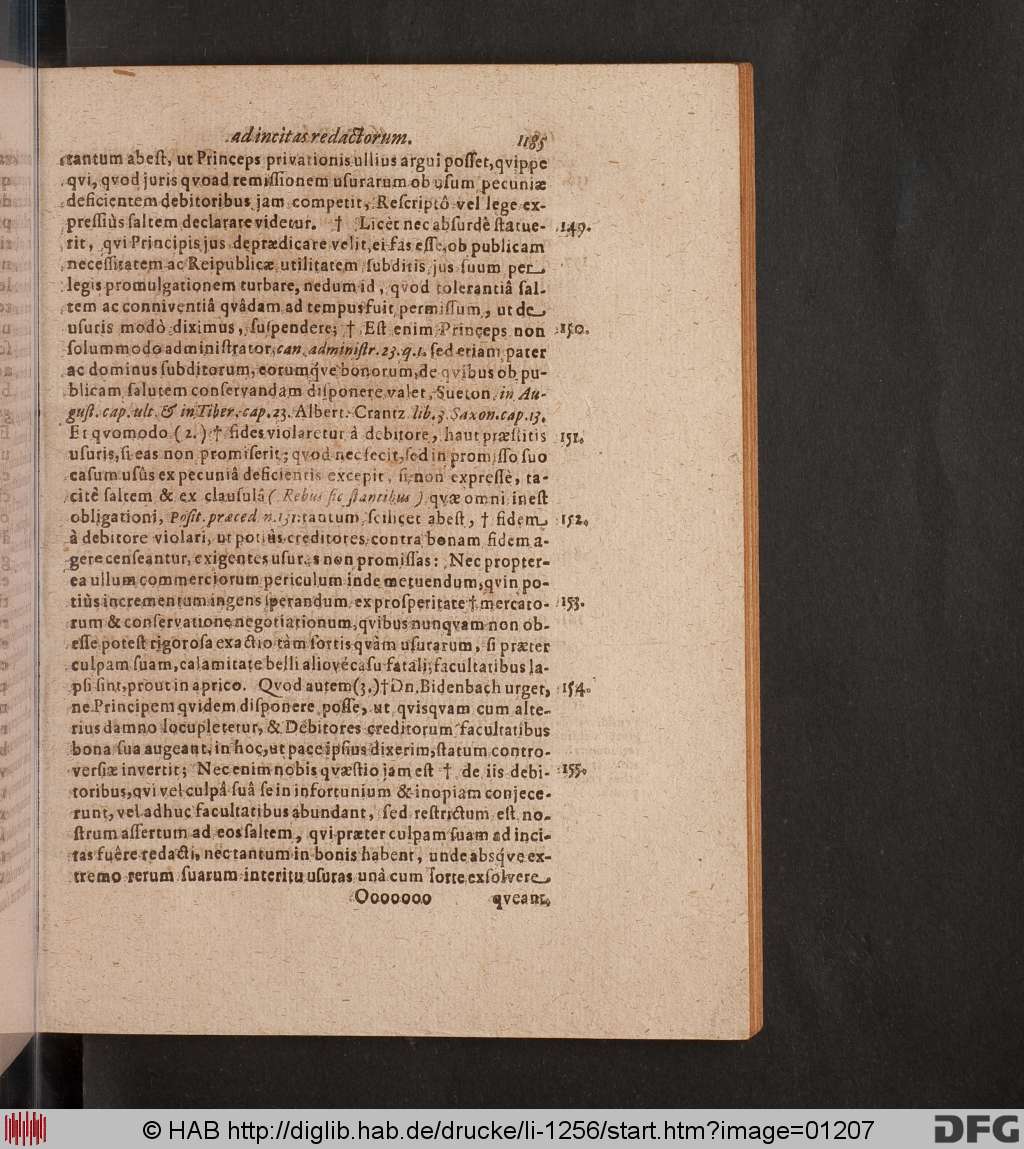 ad incitas redactorum. 1185
tantum abeſt, ut Princeps privationis ullius argui poſſet, qvippe
qvi, qvod juris qvoad remiſſionem uſurarum ob uſum pecuniæ
deficientem debitoribus jam competit, Reſcriptô vel lege ex-
preſſiùs ſaltem declarare videtur. † Licèt nec abſurdè ſtatue- 149.
rit, qvi Principis jus deprædicare velit, ei fas eſſe, ob publicam
neceſſitatem ac Reipublicæ utilitatem ſubditis jus ſuum per
legis promulgationem turbare, nedum id, qvod tolerantiâ ſal-
tem ac conniventiâ qvâdam ad tempus fuit permiſſum, ut de
uſuris modò diximus, ſuſpendere; † Eſt enim Princeps non 150.
ſolummodo adminiſtrator, can. adminiſtr. 23. q. 1. ſed etiam pater
ac dominus ſubditorum, eorumq́ve bonorum, de qvibus ob pu-
blicam ſalutem conſervandam diſponere valet, Sueton. in Au-
guſt. cap. ult. & in Tiber. cap. 23. Albert. Crantz lib. 3. Saxon. cap. 13.
Et qvomodo (2.) † fides violaretur à debitore, haut præſtitis 151.
uſuris, ſi eas non promiſerit; qvod nec fecit, ſed in promiſſo ſuo
caſum uſûs ex pecuniâ deficientis excepit, ſi non expreſſè, ta-
citè ſaltem & ex clauſulâ (Rebus ſic ſtantibus) qvæ omni ineſt
obligationi, Poſit. præced. n. 131. tantum ſcilicet abeſt, † fidem 152.
à debitore violari, ut potiùs creditores contra bonam fidem a-
gere cenſeantur, exigentes uſuras non promiſſas: Nec propter-
ea ullum commerciorum periculum inde metuendum, qvin po-
tiùs incrementum ingens ſperandum ex proſperitate † mercato- 153.
rum & conſervatione negotiationum, qvibus nunqvam non ob-
eſſe poteſt rigoroſa exactio tàm ſortis qvàm uſurarum, ſi præter
culpam ſuam, calamitate belli aliovécaſu fatali, facultatibus la-
pſi ſint, prout in aprico. Qvod autem (3.) † Dn. Bidenbach urget, 154.
ne Principem qvidem diſponere poſſe, ut qvisqvam cum alte-
rius damno locupletetur, & Debitores creditorum facultatibus
bona ſua augeant, in hoc, ut pace ipſius dixerim, ſtatum contro-
verſiæ invertit; Nec enim nobis qvæſtio jam eſt † de iis debi- 155.
toribus, qvi vel culpâ ſuâ ſe in infortunium & inopiam conjece-
runt, vel adhuc facultatibus abundant, ſed reſtrictum eſt no-
ſtrum aſſertum ad eos ſaltem, qvi præter culpam ſuam ad inci-
tas fuêre redacti, nec tantum in bonis habent, unde absq́ve ex-
tremo rerum ſuarum interitu uſuras unà cum ſorte exſolvere
Ooooooo qveant,
© HAB http://diglib.hab.de/drucke/li-1256/start.htm?image=01207
DFG